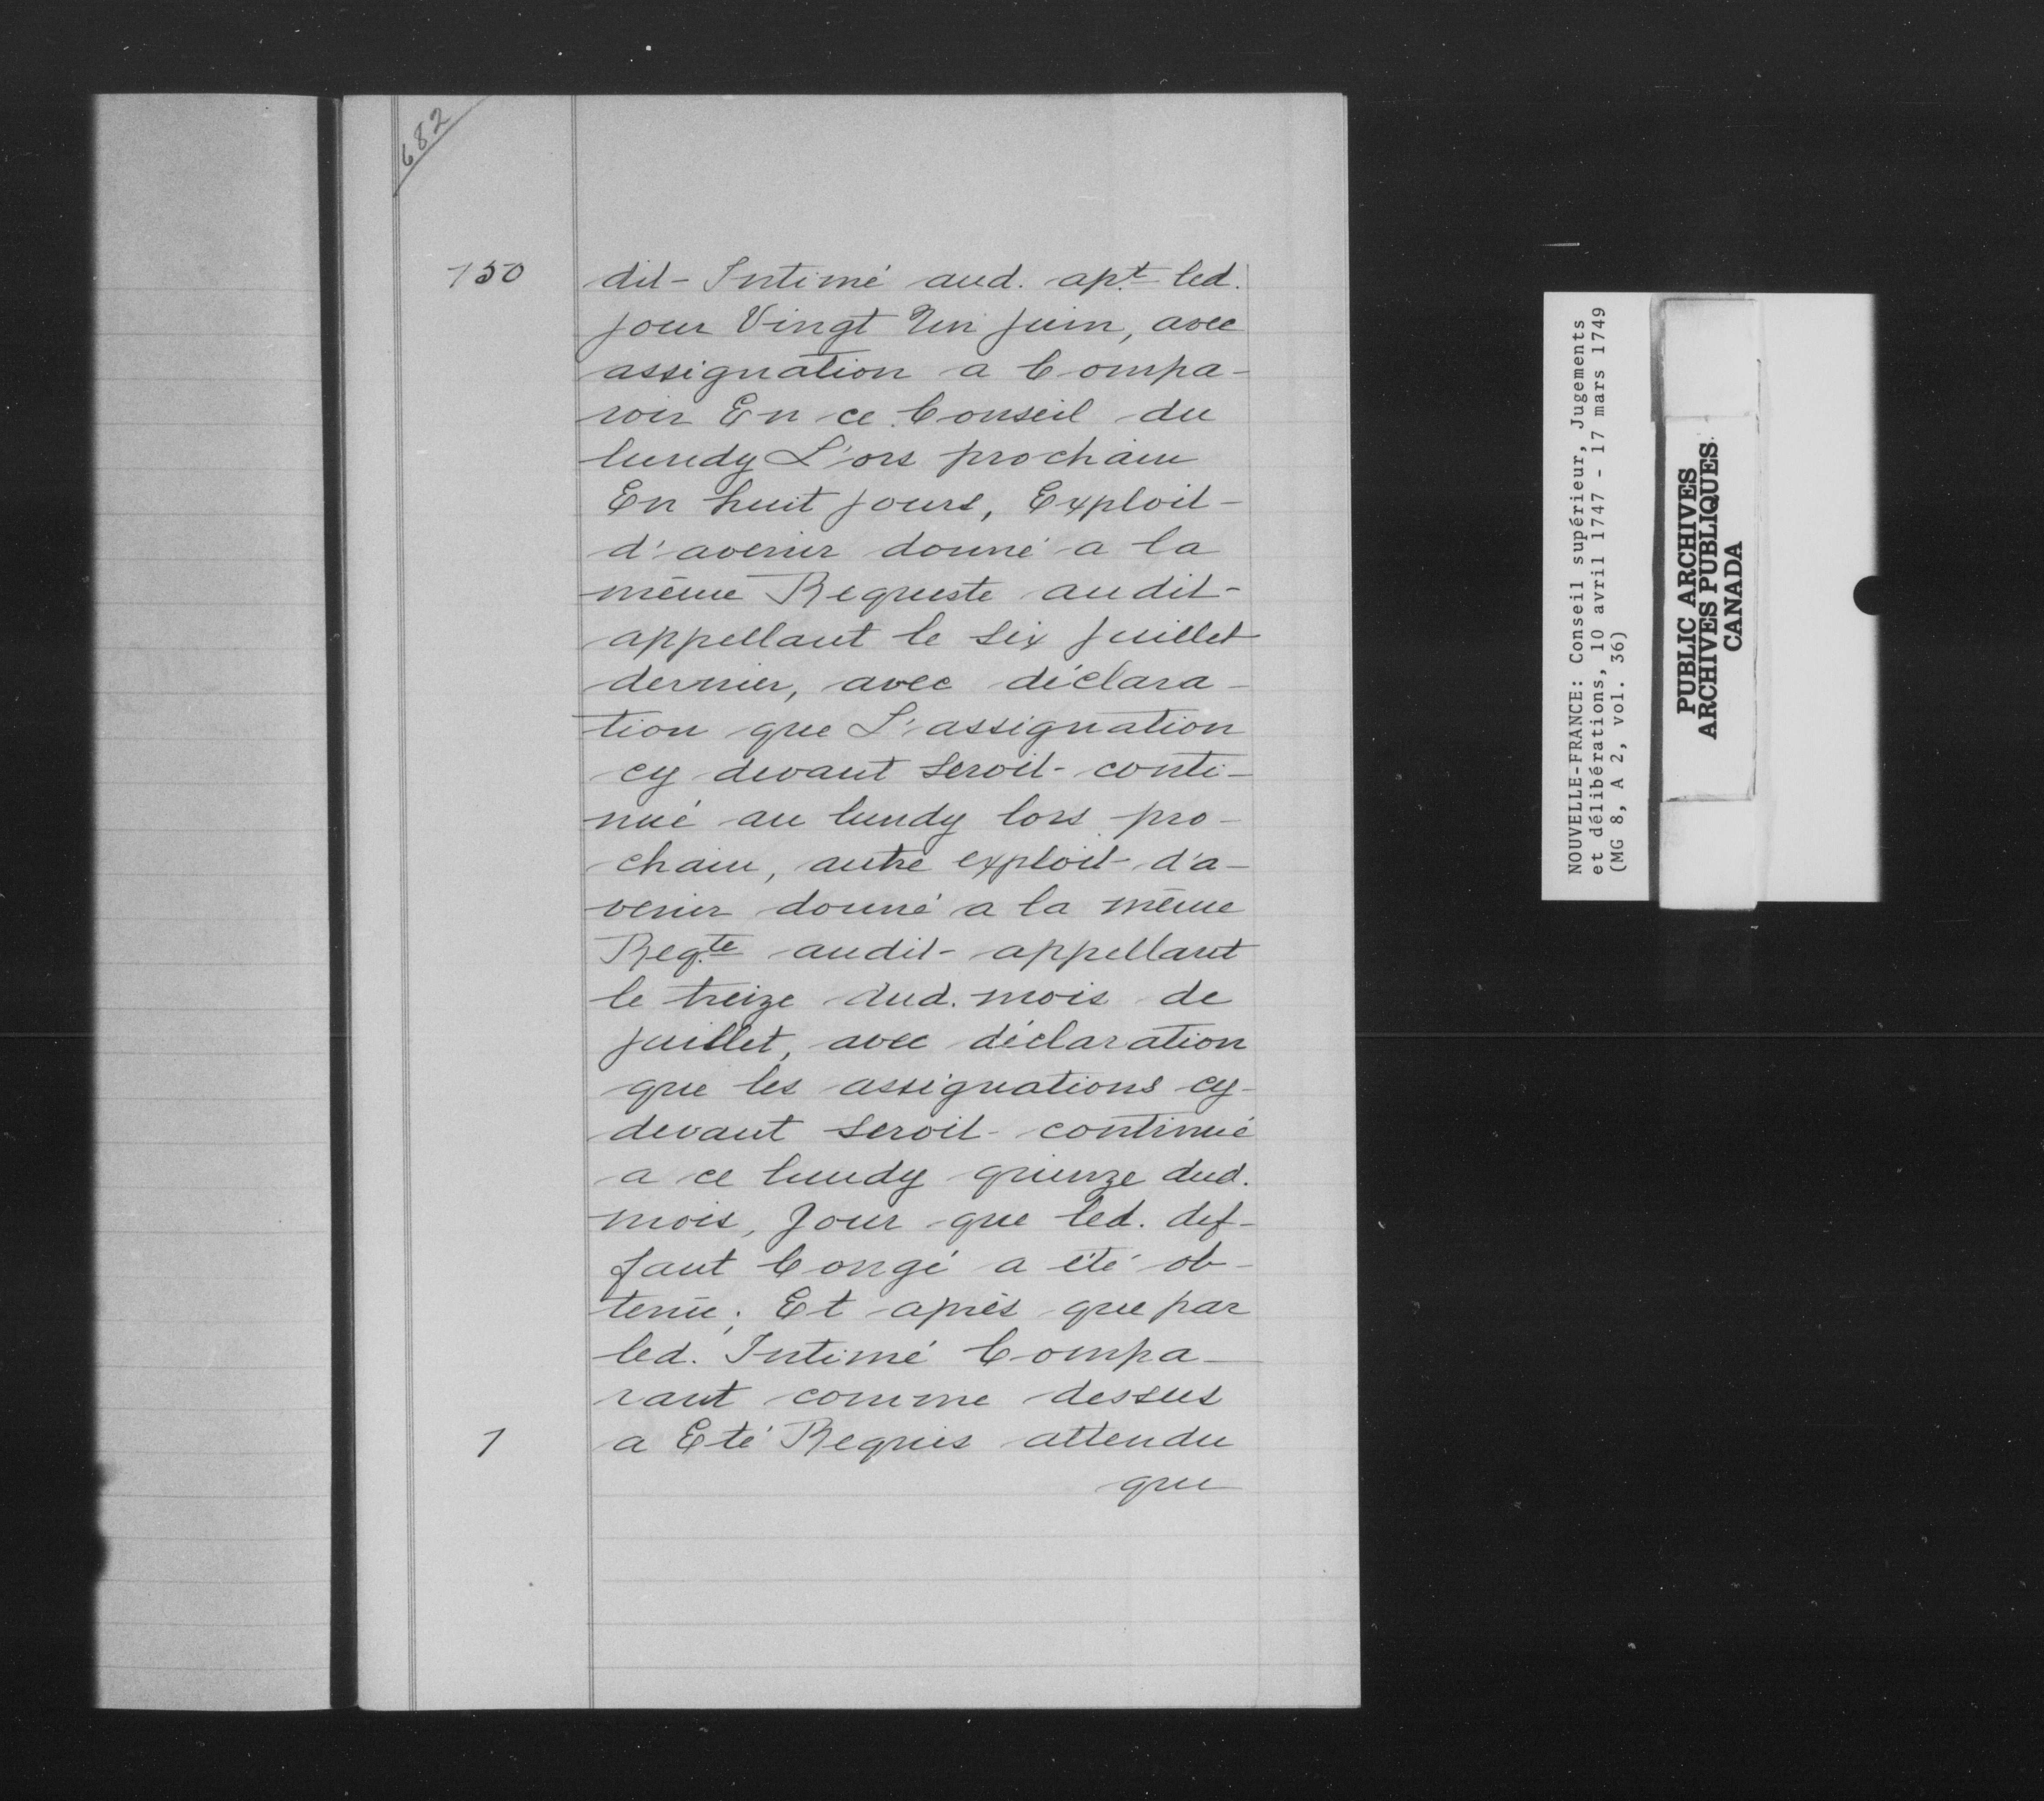 682
150
dit Intimé aud. apt. led.
jour Vingt Un juin, avec
assignation a Compa-
roir En ce Conseil du
lundy L'ors prochain
En huit jours, Exploit
d'avenir donné a la
même Requeste audit
appellant le six juillet
dernier, avec déclara-
tion que L'assignation
cy devant seroit conti-
nué au lundy lors pro-
chain, autre exploit d'a-
venir donné a la même
Reqte. audit appellant
le treize dud. mois de
juillet, avec déclaration
que les assignations cy-
devant seroit continué
a ce lundy quinze dud.
mois, Jour que led. def-
faut Congé a été ob-
tenu; Et après que par
led. Intimé Compa-
rant comme dessus
1
a Eté Requis attendu
que
NOUVELLE-FRANCE: Conseil supérieur, Jugements
et délibérations, 10 avril 1747 - 17 mars 1749
(MG 8, A 2, vol. 36)
PUBLIC ARCHIVES
ARCHIVES PUBLIQUES
CANADA